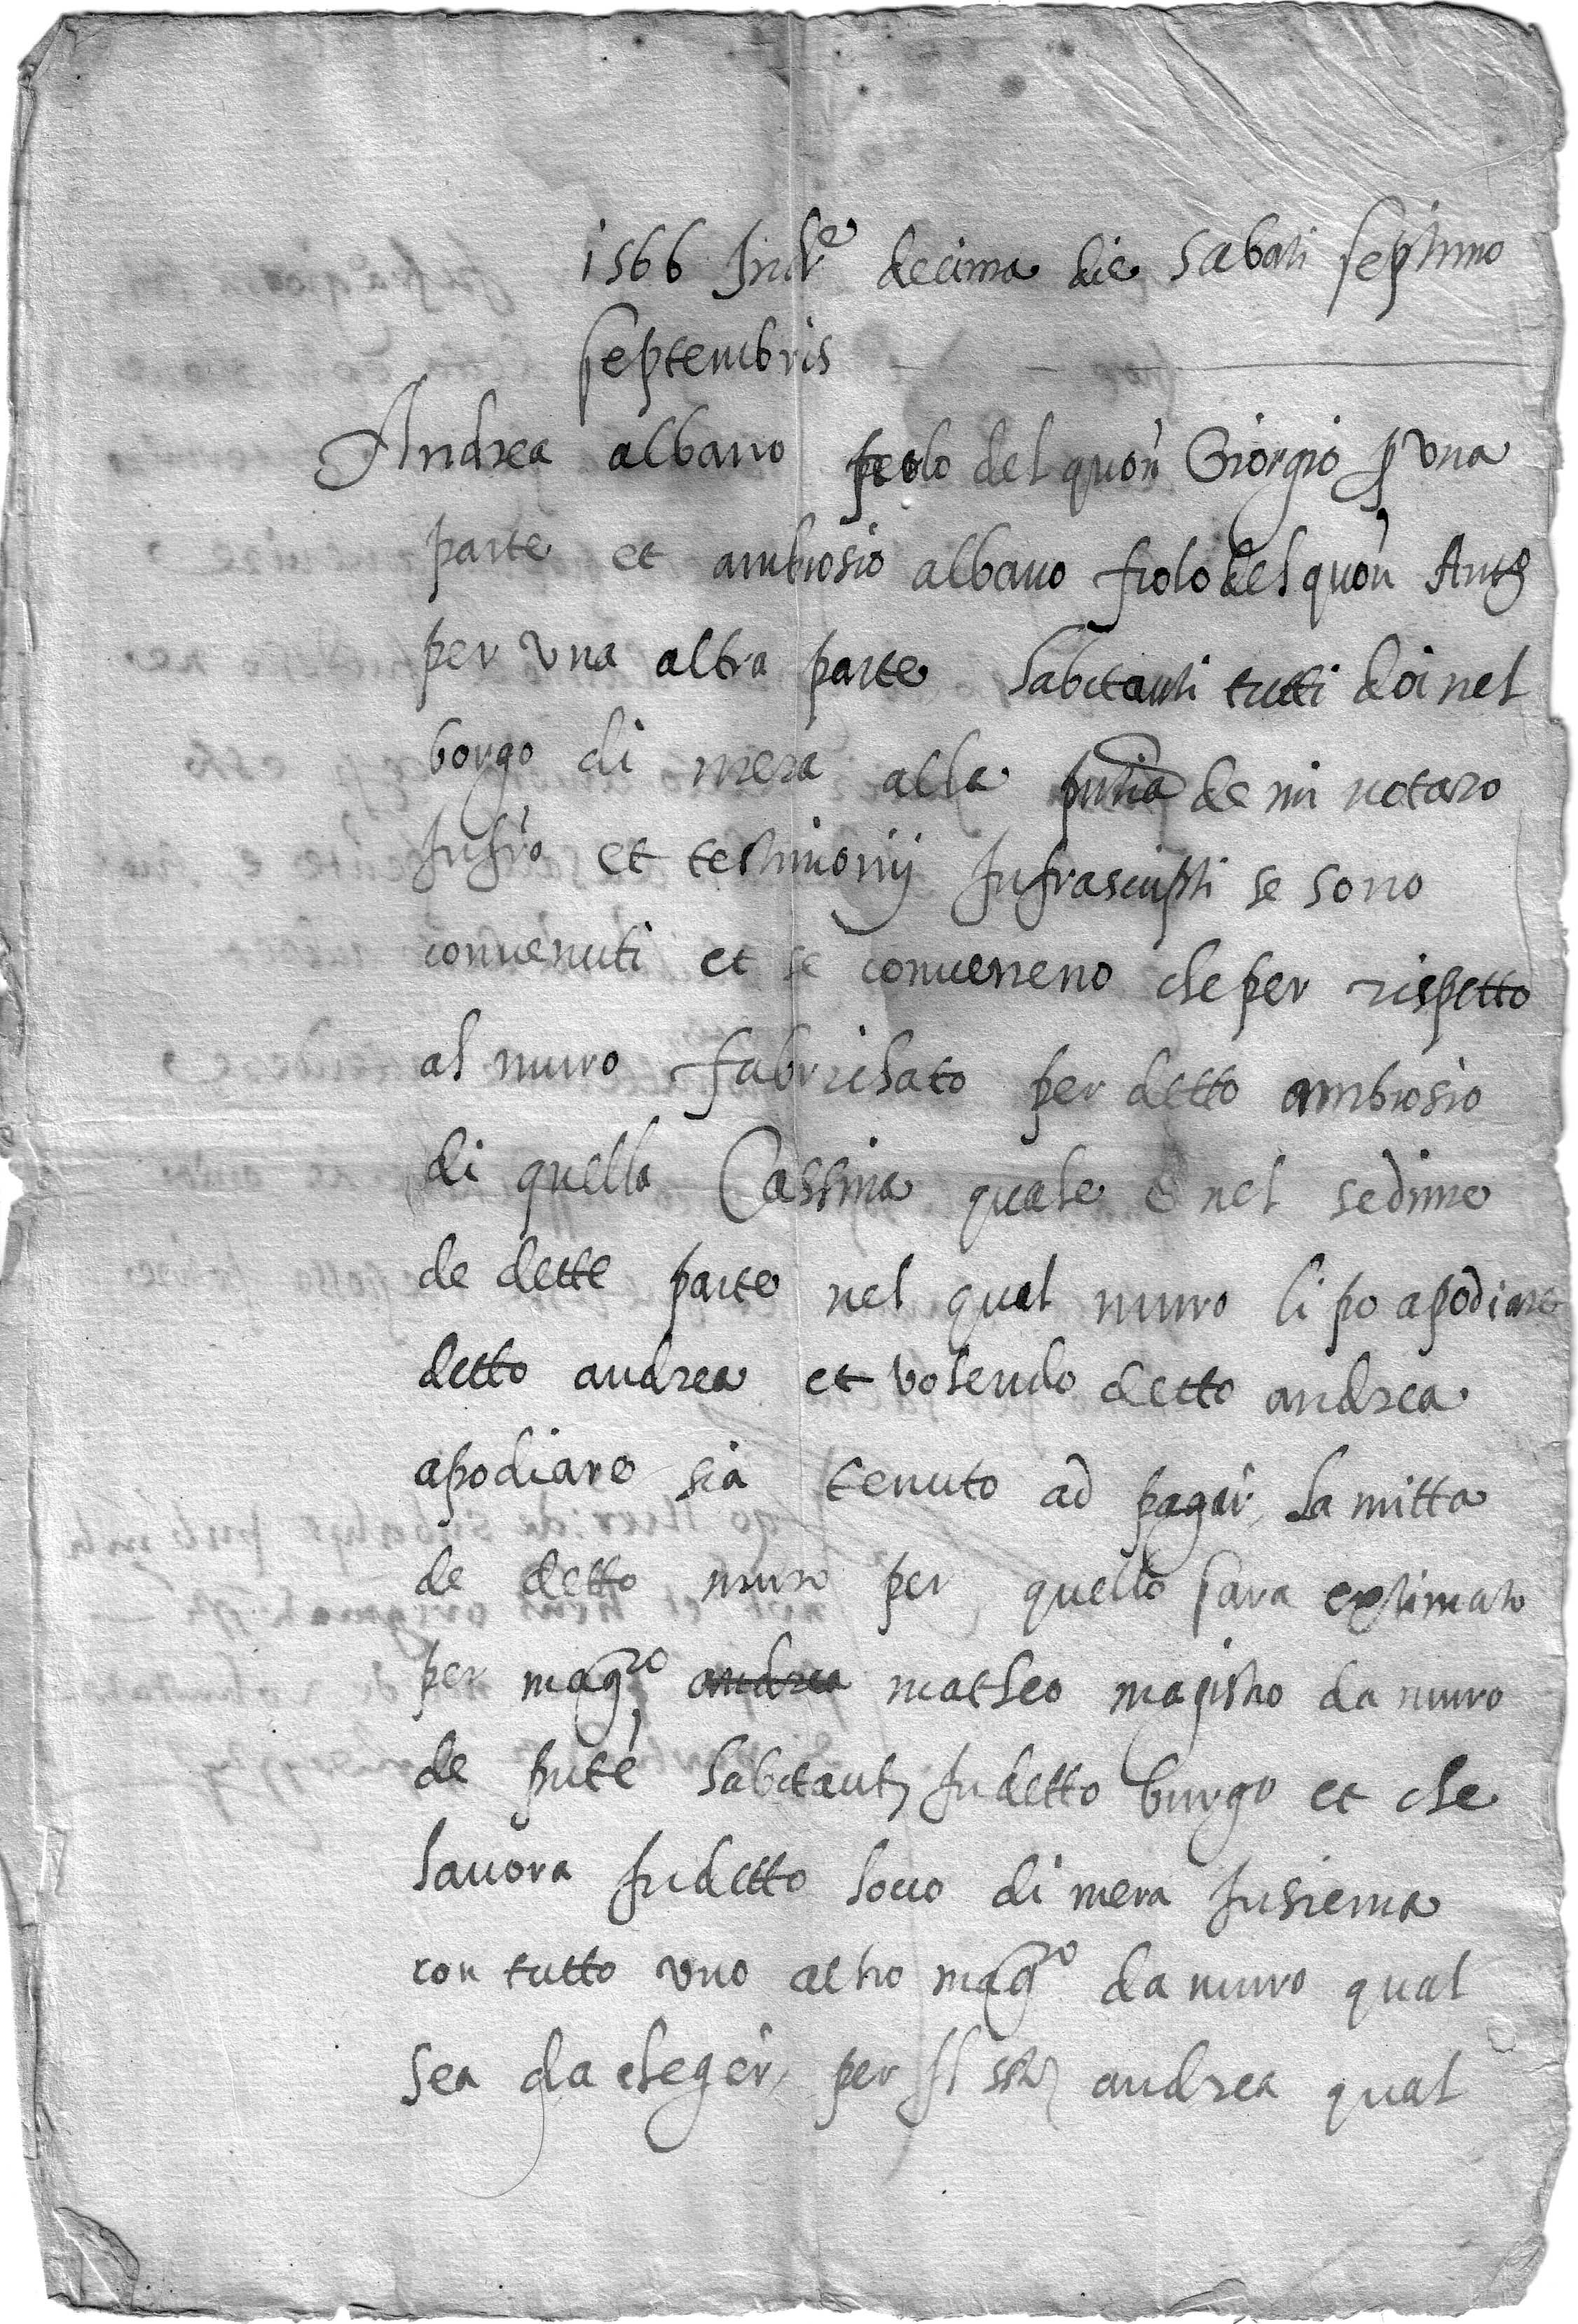 1566 Ind.e decima die sabati septimo
septembris
Andrea albano fiolo del quon Giorgio p una
parte et ambrosio albano fiolo del quon Ant.
per una altra parte habitanti tutti doi nel
borgo di mera alla pntia de mi notaro
Infro et testimonij Infrascripti se sono
convenuti et se conveneno che per rispetto
al muro fabrichato per detto ambrosio
di quella Cassina quale è nel sedime
de dette parte nel qual muro li po apodiare
detto andrea et volendo detto andrea
apodiare sia tenuto ad pagar la mitta
de detto muro per quello sara extimato
per mag.ro andrea matheo magistro da muro
de habitant In detto burgo et che
lavora In detto loco di mera Insiema
con tutto uno altro mag.ro da muro qual
sea da eleger per Il andrea qual